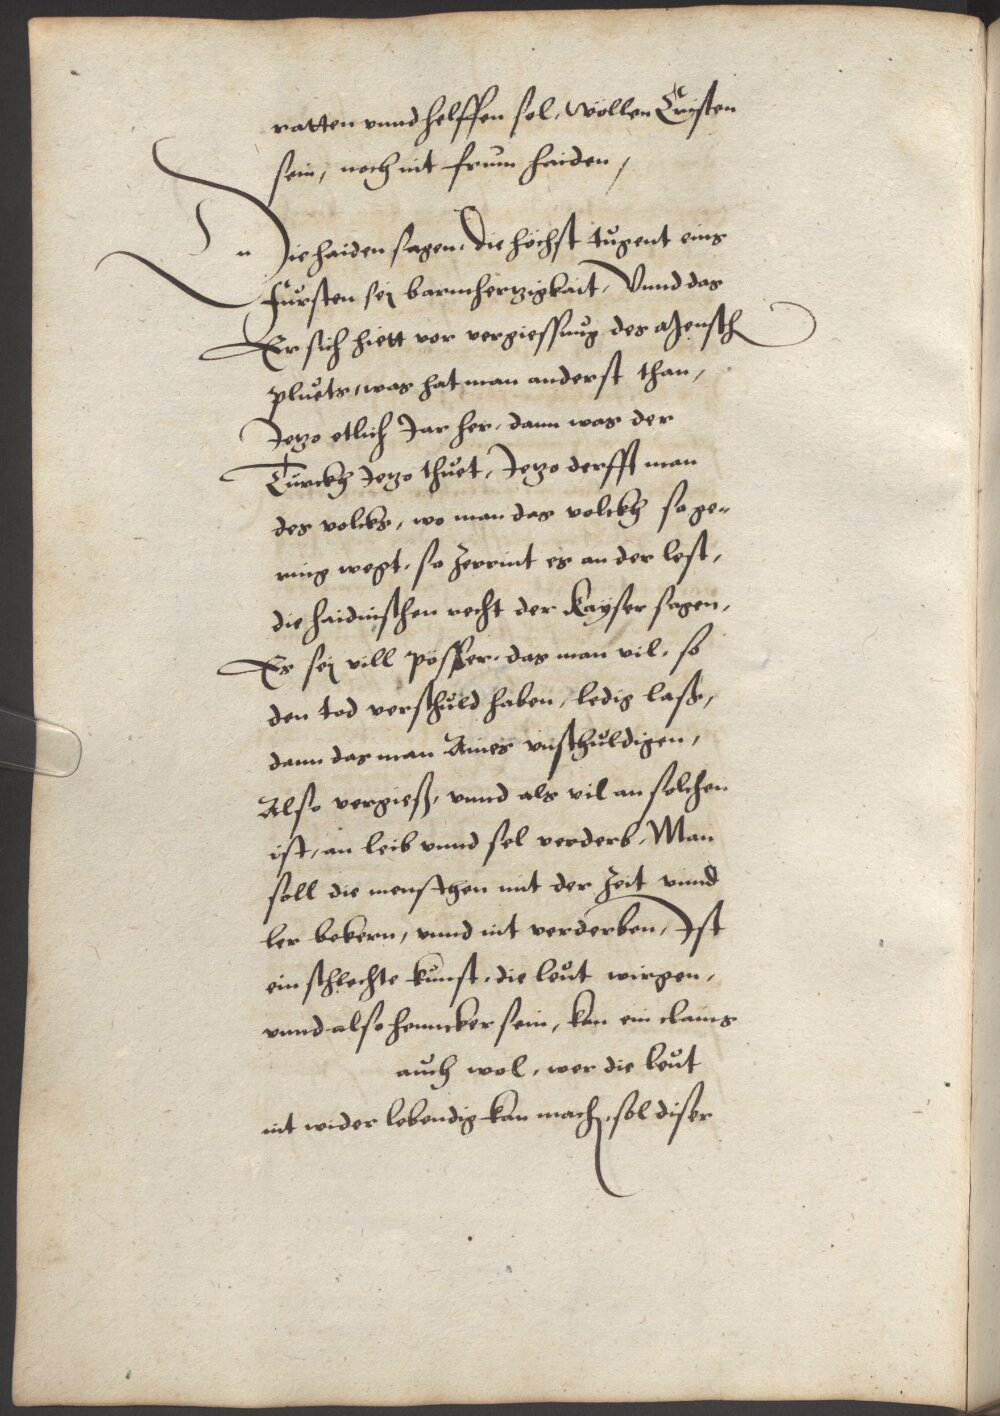 ratten vnnd helffen sol, wöllen Cristen
sein, noch nit frum haiden,
Die haiden sagen, die höchst tugent eins
Fürsten seӱ barmhertzigkait, Vnnd das
Er sich hiett vor vergiessung des Mensch
pluets, was hat man anderst than,
Jetzo etlich Jar her, dann was der
Türckh Jetzo thuet, Jetzo derfft man
des volcks, wo man das volckh so ge-
ring wegt, so zerrint es an der lest,
die haidnischen recht der Kaӱser sagen,
Es seӱ vill pösser, das man vil, so
den tod verschuld haben, ledig lass,
dann das man Aines vnschuldigen,
Also vergiess, vnnd als vil an solchen
ist, an leib vnnd sel verderb, Man
soll die menschen mit der Zeit vnnd
ler bekern, vnnd nit verderben, Ist
ein schlechte kunst, die leut wirgen,
vnnd also hencker sein, kan ein clains
auch wol, wer die leut
nit wider lebendig kan mach, sol diser